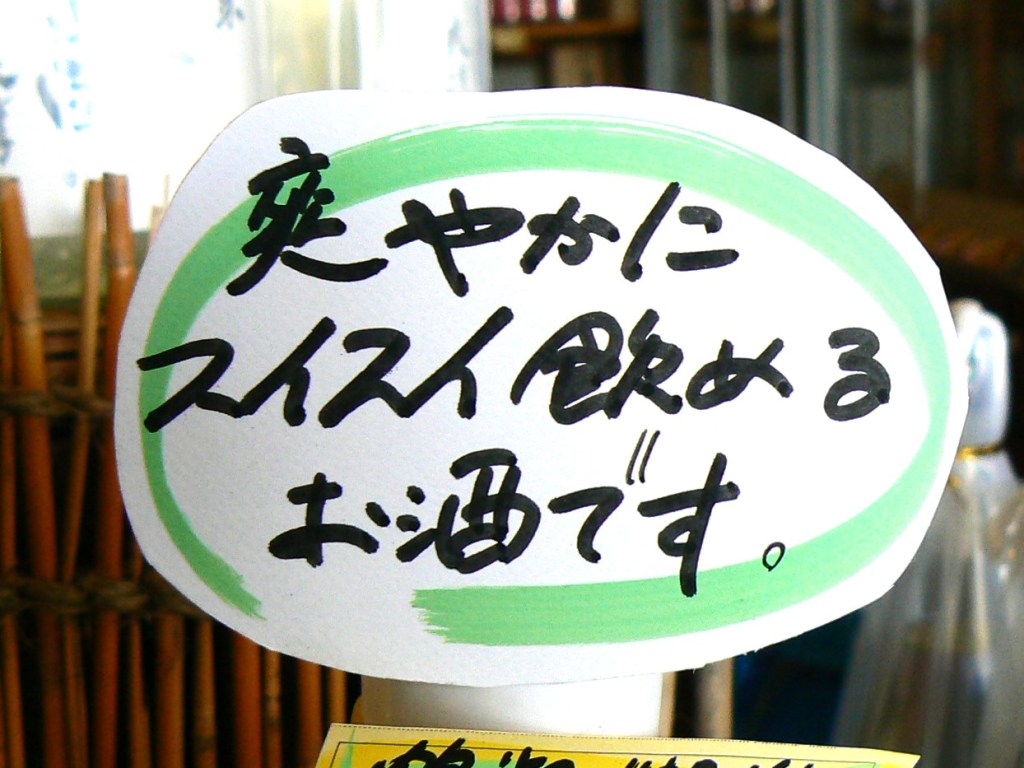 爽やかに
スイスイ飲める
お酒です。